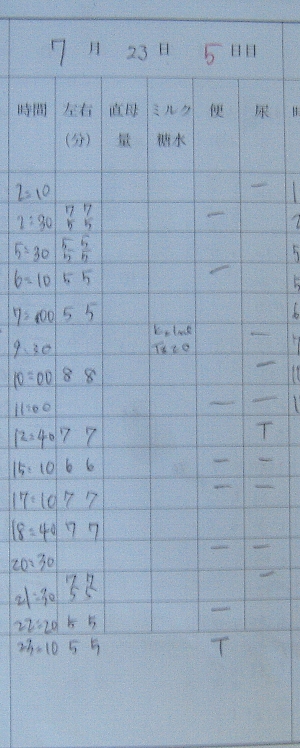 7 月 23 日 5 日目
時間 左右 直母 ミルク 便 尿
(分) 量 糖水
2:10 一
2:30 7 7 一
5 5
5:30 5 5
5 5
6:10 5 5 一
7:00 5 5
9:30 一
10:00 8 8 一
11:00 一 一
12:40 7 7 T
15:10 6 6 一 一
17:10 7 7 一 一
18:40 7 7
20:30 一 一
21:30 7 7 一
5 5
22:20 5 5 一
23:10 5 5 T